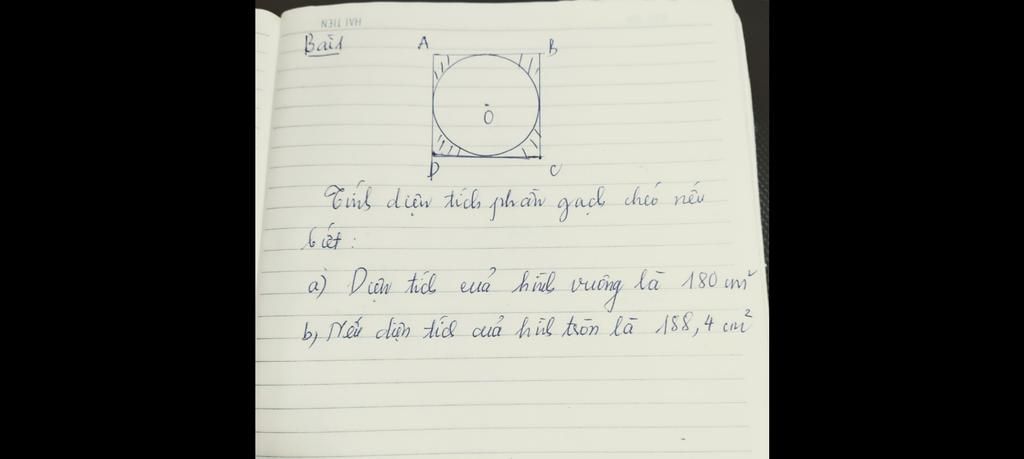 HẢI TIẾN
Bài 1
A
B
O
D
C
Tính diện tích phần gạch chéo nếu
biết :
a) Diện tích cuả hình vuông là 180 cm²
b, Nếu diện tích cuả hình tròn là 188,4 cm²